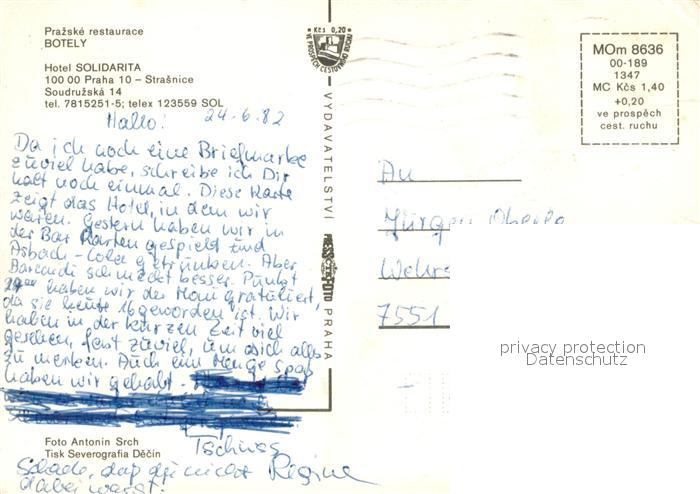 Pražské restaurace
BOTELY
Hotel SOLIDARITA
100 00 Praha 10 – Strašnice
Soudružská 14
tel. 7815251-5; telex 123559 SOL
Kčs 0,20
VE PROSPĚCH CESTOVNÍHO RUCHU
MOm 8636
00-189
1347
MC Kčs 1,40
+0,20
ve prospěch
cest. ruchu
VYDAVATELSTVÍ
PRESSFOTO
PRAHA
Hallo! 24.6.82
Da ich noch eine Briefmarke
zuviel habe, schreibe ich Dir
halt noch einmal. Diese Karte
zeigt das Hotel, in dem wir
waren. Gestern haben wir in
der Bar Karten gespielt und
Asbach-Cola getrunken. Aber
Bacardi schmeckt besser. Punkt
haben wir der Moni gratuliert,
da sie heute 16 geworden ist. Wir
haben in der kurzen Zeit viel
gesehen, fast zuviel, um sich alles
zu merken. Auch ein Menge Spaß
haben wir gehabt.
Tschüss
Regine
Schade, daß du nicht
dabei warst.
An
Jürgen
7551
privacy protection
Datenschutz
Foto Antonín Srch
Tisk Severografia Děčín